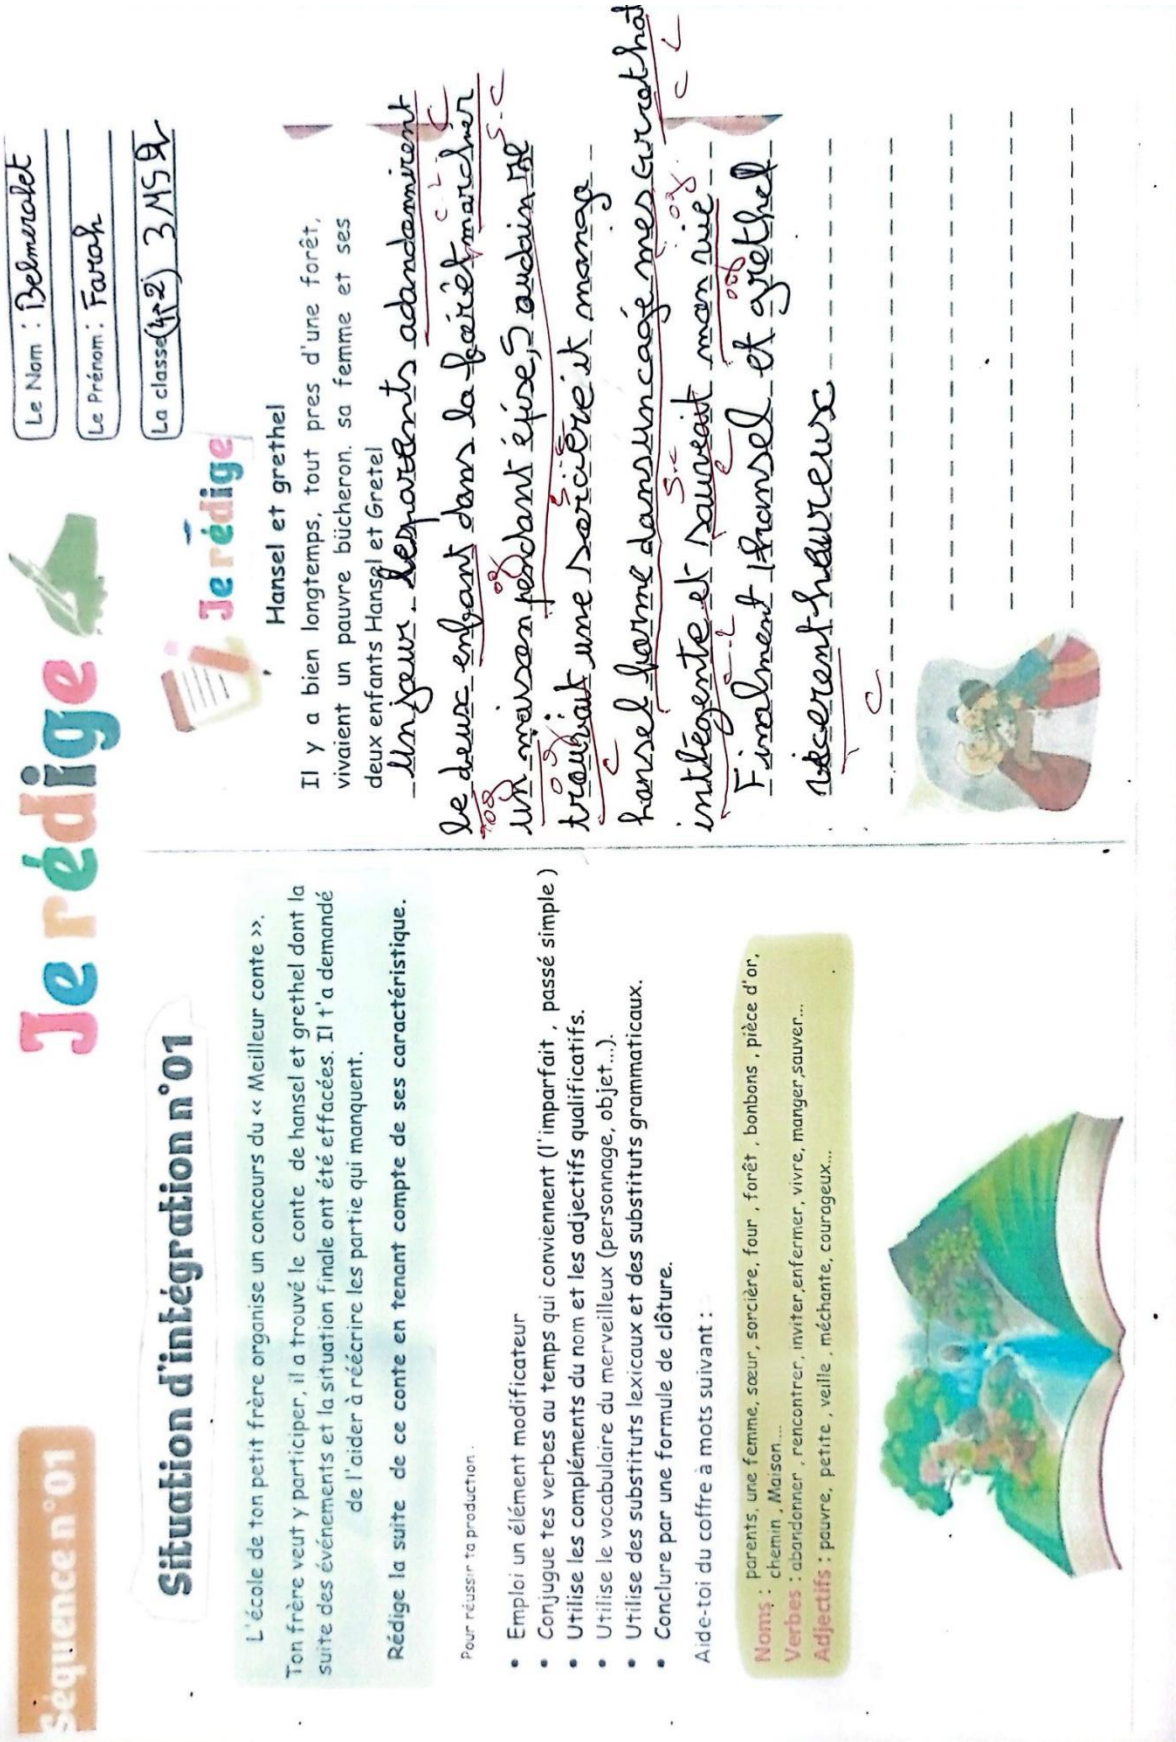 Séquence n°01
Je rédige
Situation d'intégration n°01
L'école de ton petit frère organise un concours du << Meilleur conte >>.
Ton frère veut y participer, il a trouvé le conte de hansel et grethel dont la
suite des événements et la situation finale ont été effacées. Il t'a demandé
de l'aider à réécrire les partie qui manquent.
Rédige la suite de ce conte en tenant compte de ses caractéristique.
Pour réussir ta production :
• Emploi un élément modificateur
• Conjugue tes verbes au temps qui conviennent (l'imparfait , passé simple )
• Utilise les compléments du nom et les adjectifs qualificatifs.
• Utilise le vocabulaire du merveilleux (personnage, objet...).
• Utilise des substituts lexicaux et des substituts grammaticaux.
• Conclure par une formule de clôture.
Aide-toi du coffre à mots suivant :
Noms : parents, une femme, sœur, sorcière, four , forêt , bonbons , pièce d'or,
chemin , Maison....
Verbes : abandonner , rencontrer, inviter,enfermer, vivre, manger,sauver...
Adjectifs : pauvre, petite , veille , méchante, courageux...
Le Nom : Belmerabet
Le Prénom : Farah
La classe (4,2) 3MS2
Je rédige
Hansel et grethel
Il y a bien longtemps, tout pres d'une forêt,
vivaient un pauvre bûcheron. sa femme et ses
deux enfants Hansel et Gretel
Un jour. les parents adandonnirent
le deux enfant dans la foriét marcher
un maison pendant épise, Soudain
trouvait une sorcière it mange
hansel ferme dans un cagé mes
intélegente et sauveait man vie
Finalment hansel et grethel
vécerent heureux